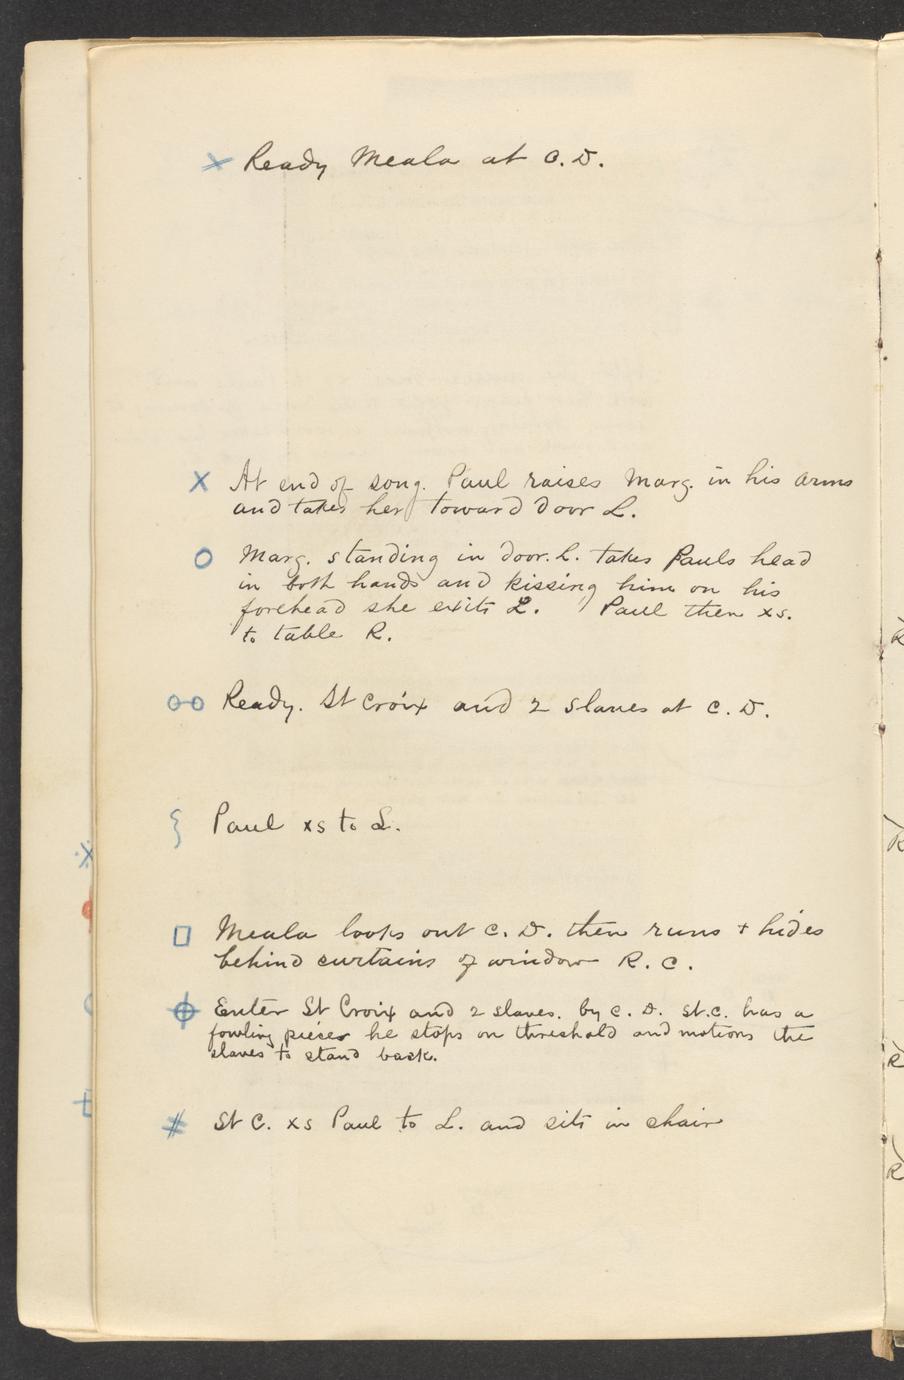 x Ready Meala at C. D.
x At end of song. Paul raises Marg. in his arms
and takes her toward door L.
o Marg. standing in door. L. takes Pauls head
in both hands and kissing him on his
forehead she exits L. Paul then xs.
to table R.
oo Ready. St Croix and 2 slaves at C. D.
{ Paul xs to L.
□ Meala looks out C. D. then runs + hides
behind curtains of window R. C.
ϕ Enter St Croix and 2 slaves. by C. D. St. C. has a
fowling piece he stops on threshold and motions the
slaves to stand back.
# St C. xs Paul to L. and sits in chair